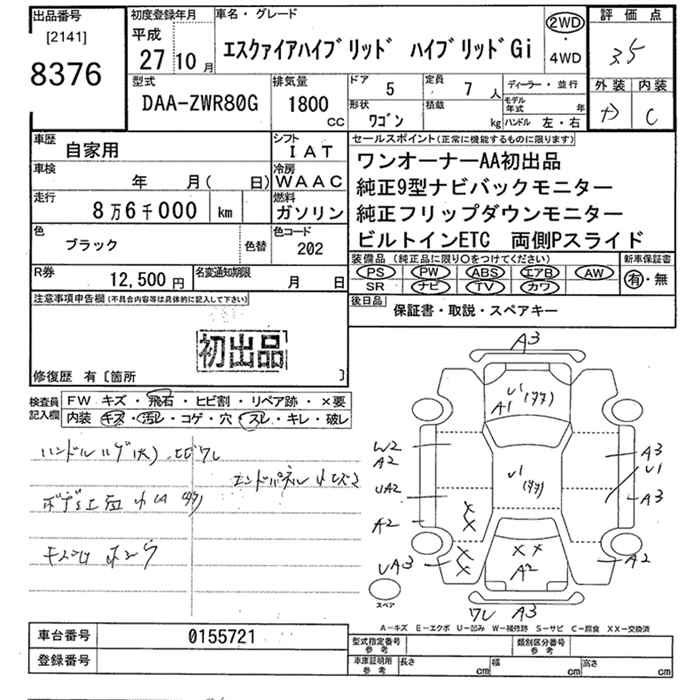 出品番号
[2141]
8376
初度登録年月
平成
27 10月
車名・グレード
エスクァイアハイブリッド ハイブリッドGi
2WD
・
4WD
評価点
35
外装 内装
C
型式
DAA-ZWR80G
排気量
1800
CC
ドア 5
定員 7 人
形状
ワゴン
積載
kg
ディーラー・並行
モデル年式 年
ハンドル 左・右
車歴 自家用
シフト
IAT
車検 年 月( 日)
冷房
WAAC
走行 8万6千000 km
燃料
ガソリン
色 ブラック
色替
色コード
202
R券 12,500円
名変通知期限 月 日
セールスポイント(正常に機能するものに限ります)
ワンオーナーAA初出品
純正9型ナビバックモニター
純正フリップダウンモニター
ビルトインETC 両側Pスライド
装備品 (純正品に限り○をつけてください)
PS PW ABS エアB AW
SR ナビ TV カワ
新車保証書
有・無
後日品
保証書・取説・スペアキー
注意事項申告欄(不具合内容等は具体的に記入して下さい)
初出品
修復歴 有〔箇所 〕
検査員記入欄
FW キズ・飛石・ヒビ割・リペア跡・×要
内装 キズ・汚レ・コゲ・穴・スレ・キレ・破レ
A3
A1
W2
A2
UA2
A2
UA3
A3
U1
A3
A2
A2
ワレ A3
スペア
A―キズ E―エクボ U―凹み W―補修跡 S―サビ C―腐食 XX―交換済
車台番号 0155721
登録番号
型式指定番号
参考
類別区分番号
参考
車庫証明用
参考
長さ cm 幅 cm 高さ cm